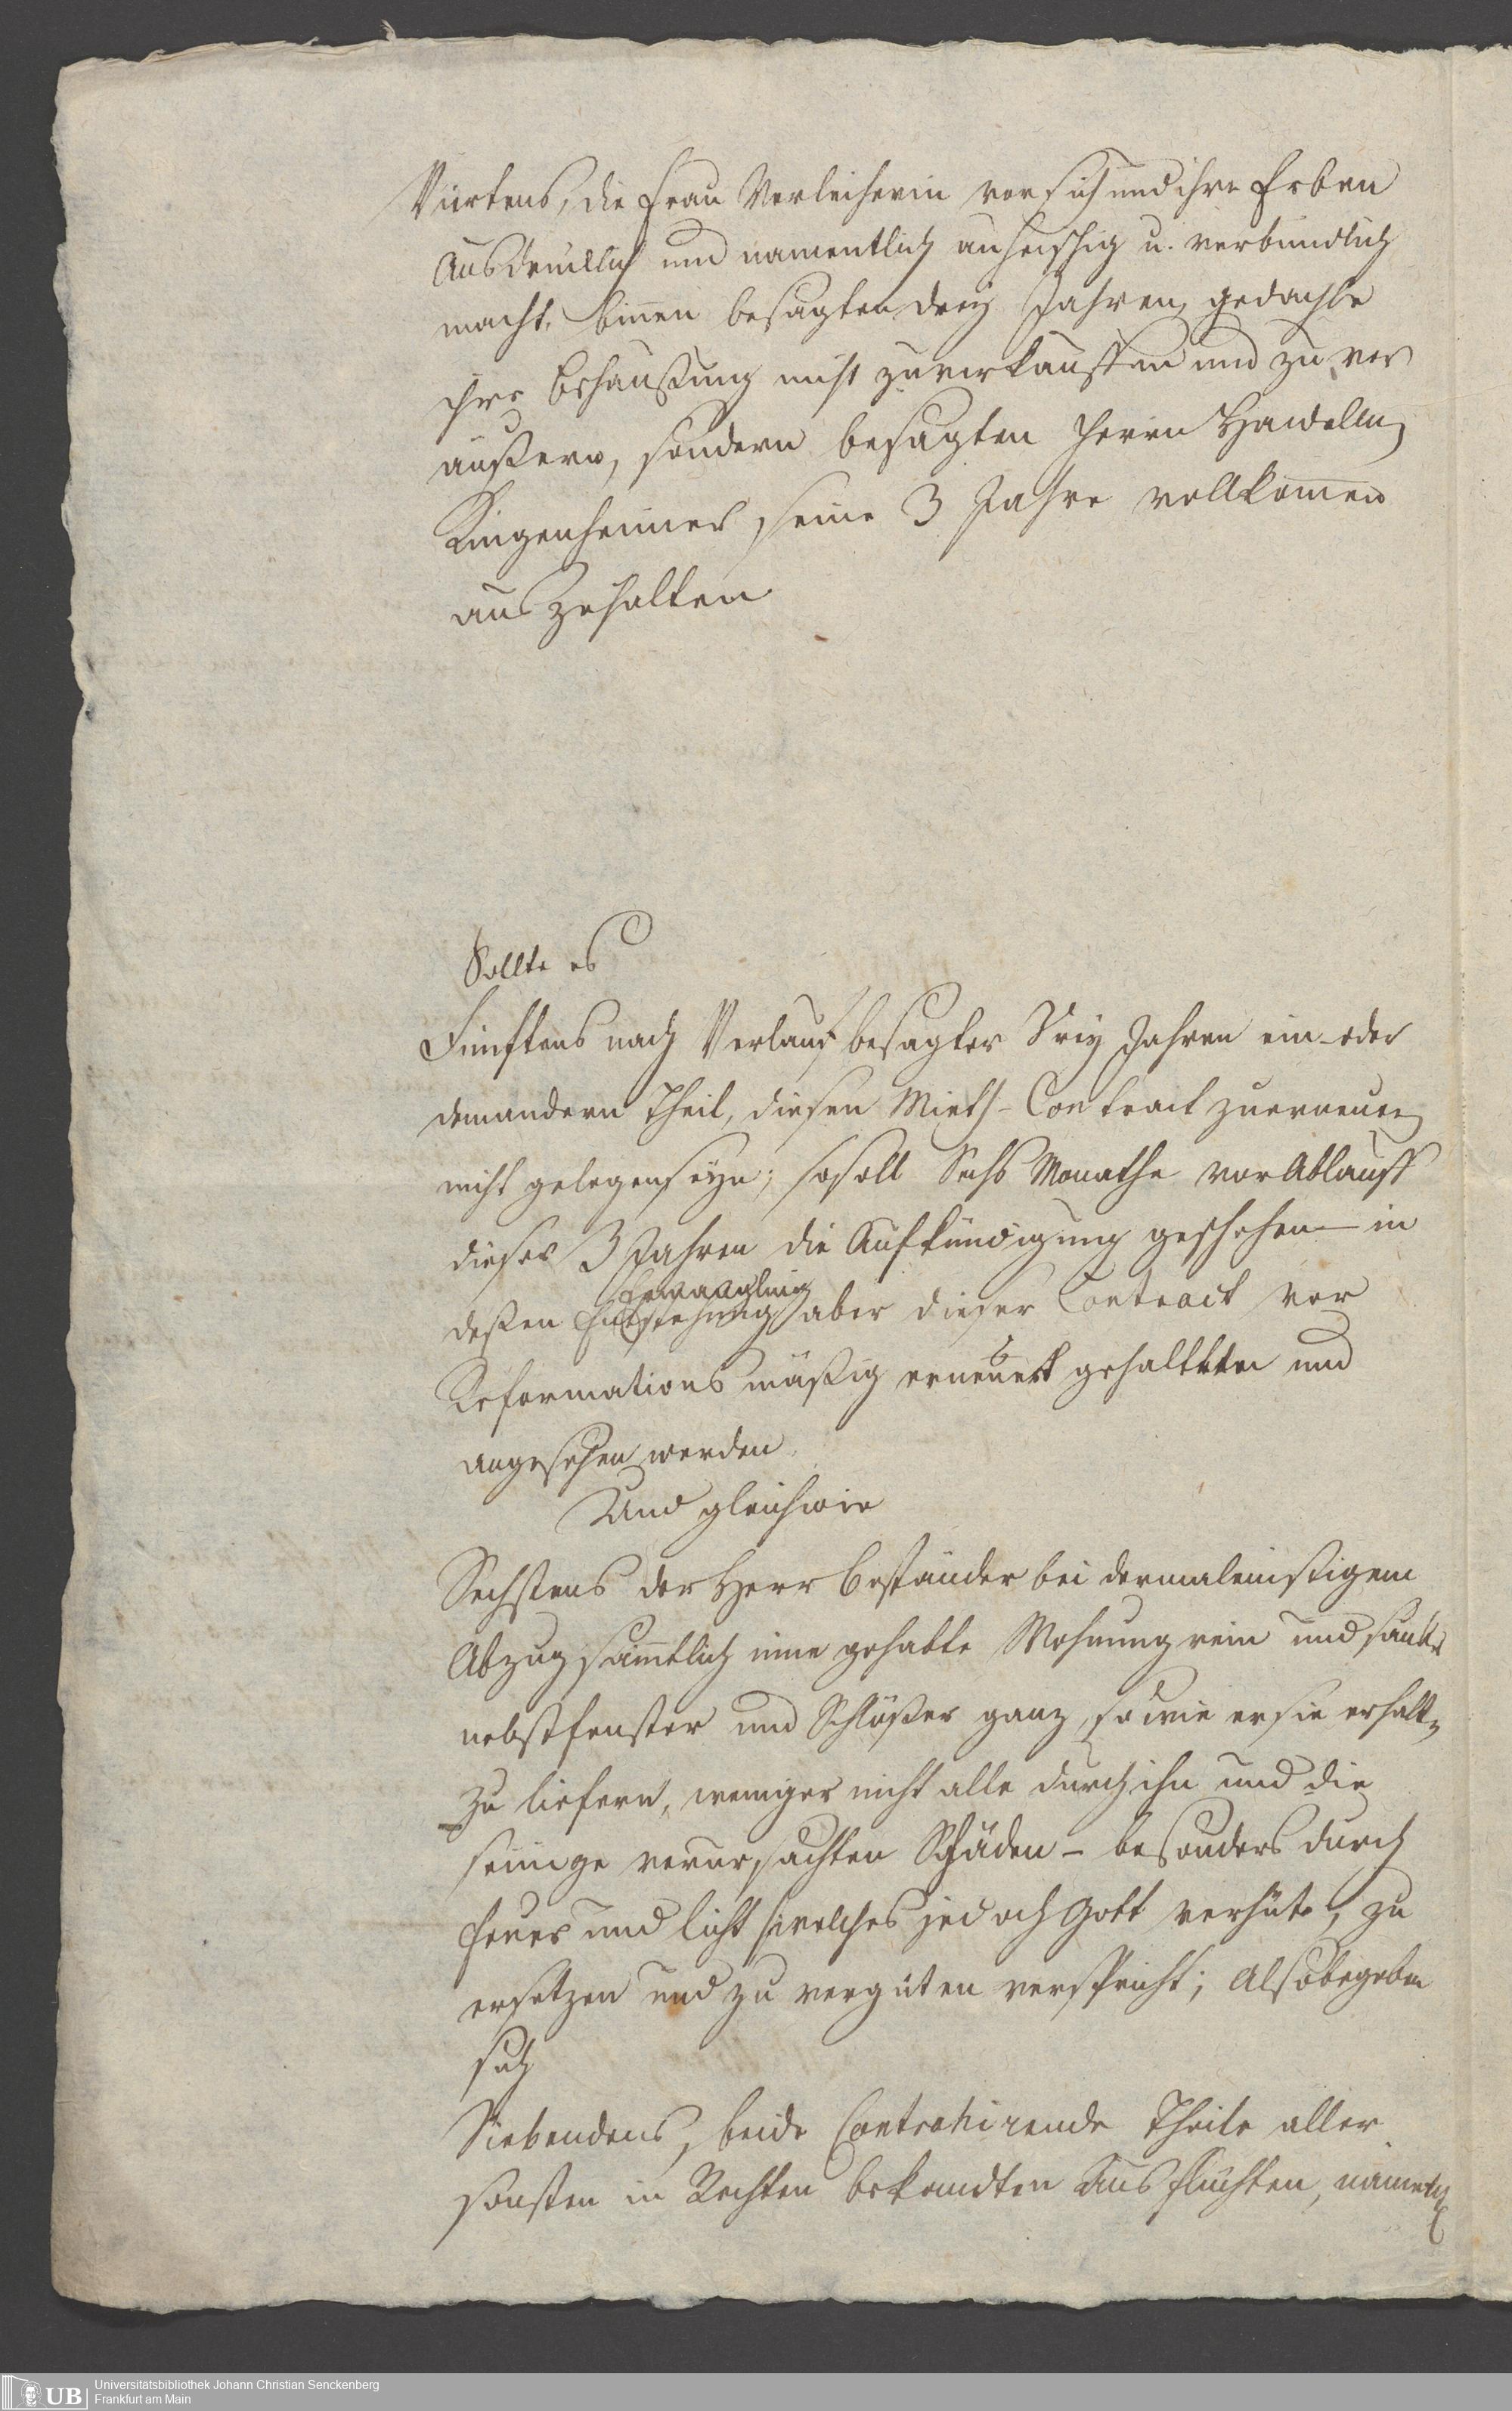 Viertens, die Frau Verleiherin vor sich und ihre Erben
Ausdrücklich und namentlich anheischig u. verbindlich
macht, binnen besagten drey Jahren, gedachte
ihre Behaußung nicht zuverkauffen und zu ver
äußern, sondern besagten Herrn
seine 3 Jahre vollkommen
aus zuhalten
Sollte es
Fünftens nach Verlauf besagter Drey Jahren ein- oder
demandern Theil, diesen Mieth-Contract zuerneuern
nicht gelegen seyn; so soll Sechs Monathe vor Ablauff
dieser 3 Jahren die Aufkündigung geschehen – in
Ermanglung
deßen Entstehung aber dieser Contract vor
Reformations mäßig erneuert gehalten und
angesehen werden.
Und gleichwie
Sechstens der Herr Beständer bei dermaleinstigem
Abzug sämmtlich inne gehabte Wohnung rein und sauber
nebst Fenster und Schlößer ganz, so wie er sie erhalten
zu liefern, weniger nicht alle durch ihn und die
seinige verursachten Schäden – besonders durch
Feuer und Licht (welches jedoch Gott verhüte, zu
ersetzen und zu vergüten verspricht; Also begeben
sich
Siebendens, beide Contrahirende Theile aller
sonsten in Rechten bekandten Ausflüchten, namentlich
UB
Universitätsbibliothek Johann Christian Senckenberg
Frankfurt am Main